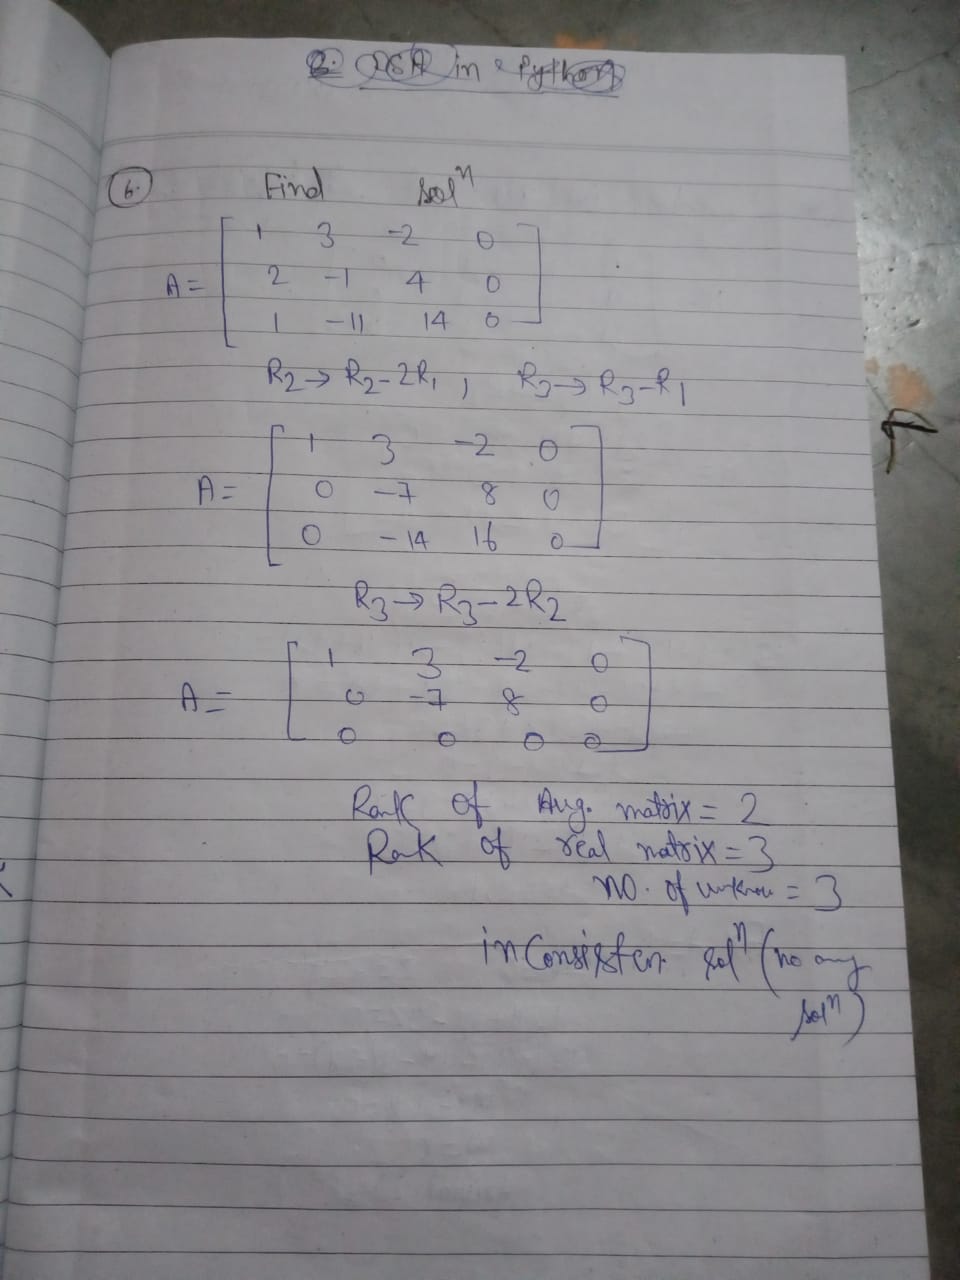 2. DSA in Python
6. Find solⁿ
A = [ 1 3 -2 0
2 -1 4 0
1 -11 14 0 ]
R₂ → R₂ - 2R₁ , R₃ → R₃ - R₁
A = [ 1 3 -2 0
0 -7 8 0
0 -14 16 0 ]
R₃ → R₃ - 2R₂
A = [ 1 3 -2 0
0 -7 8 0
0 0 0 0 ]
Rank of Aug. matrix = 2
Rank of real matrix = 3
no. of unknow = 3
inconsisten solⁿ (no any
solⁿ)